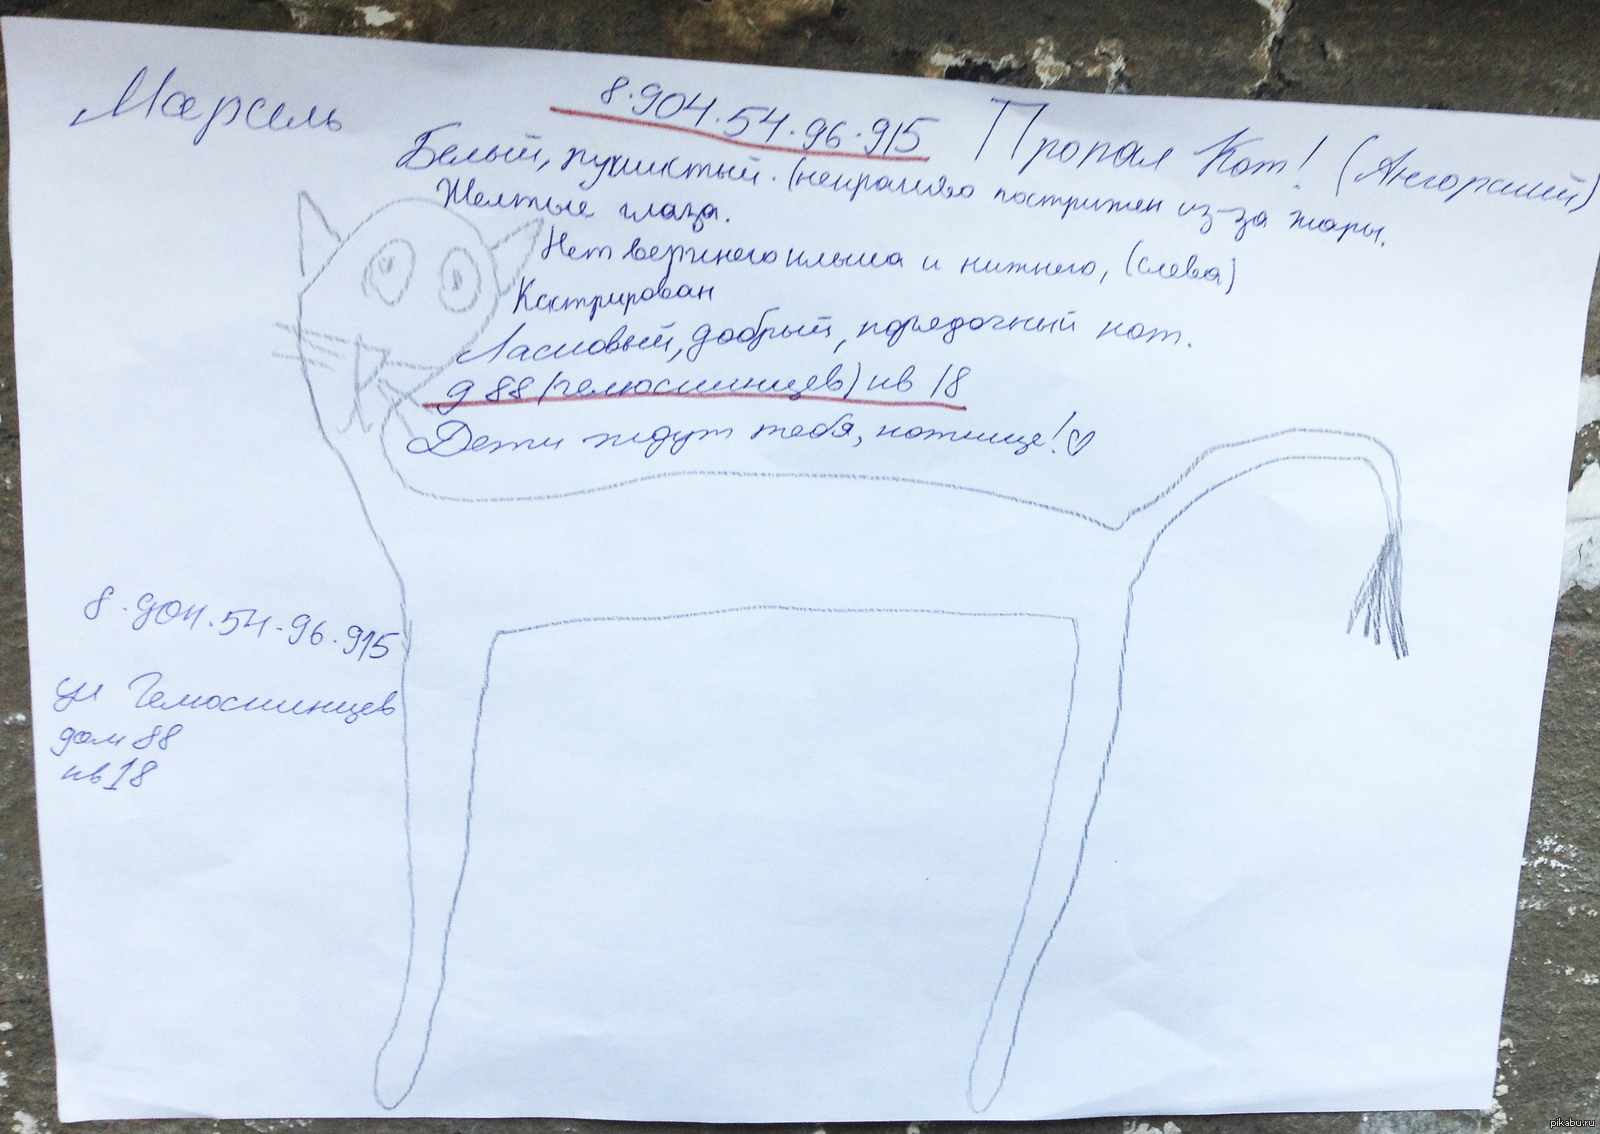 Марсель
8-904-54-96-915
Пропал Кот! (Ангорский)
Белый, пушистый. (некрасиво пострижен из-за жары.
Желтые глаза.
Нет верхнего клыка и нижнего, (слева)
Кастрирован
Ласковый, добрый, порядочный кот.
д 88 (Челюскинцев) кв 18
Дети ждут тебя, котище! ♡
8-904-54-96-915
ул Челюскинцев
дом 88
кв 18
pikabu.ru